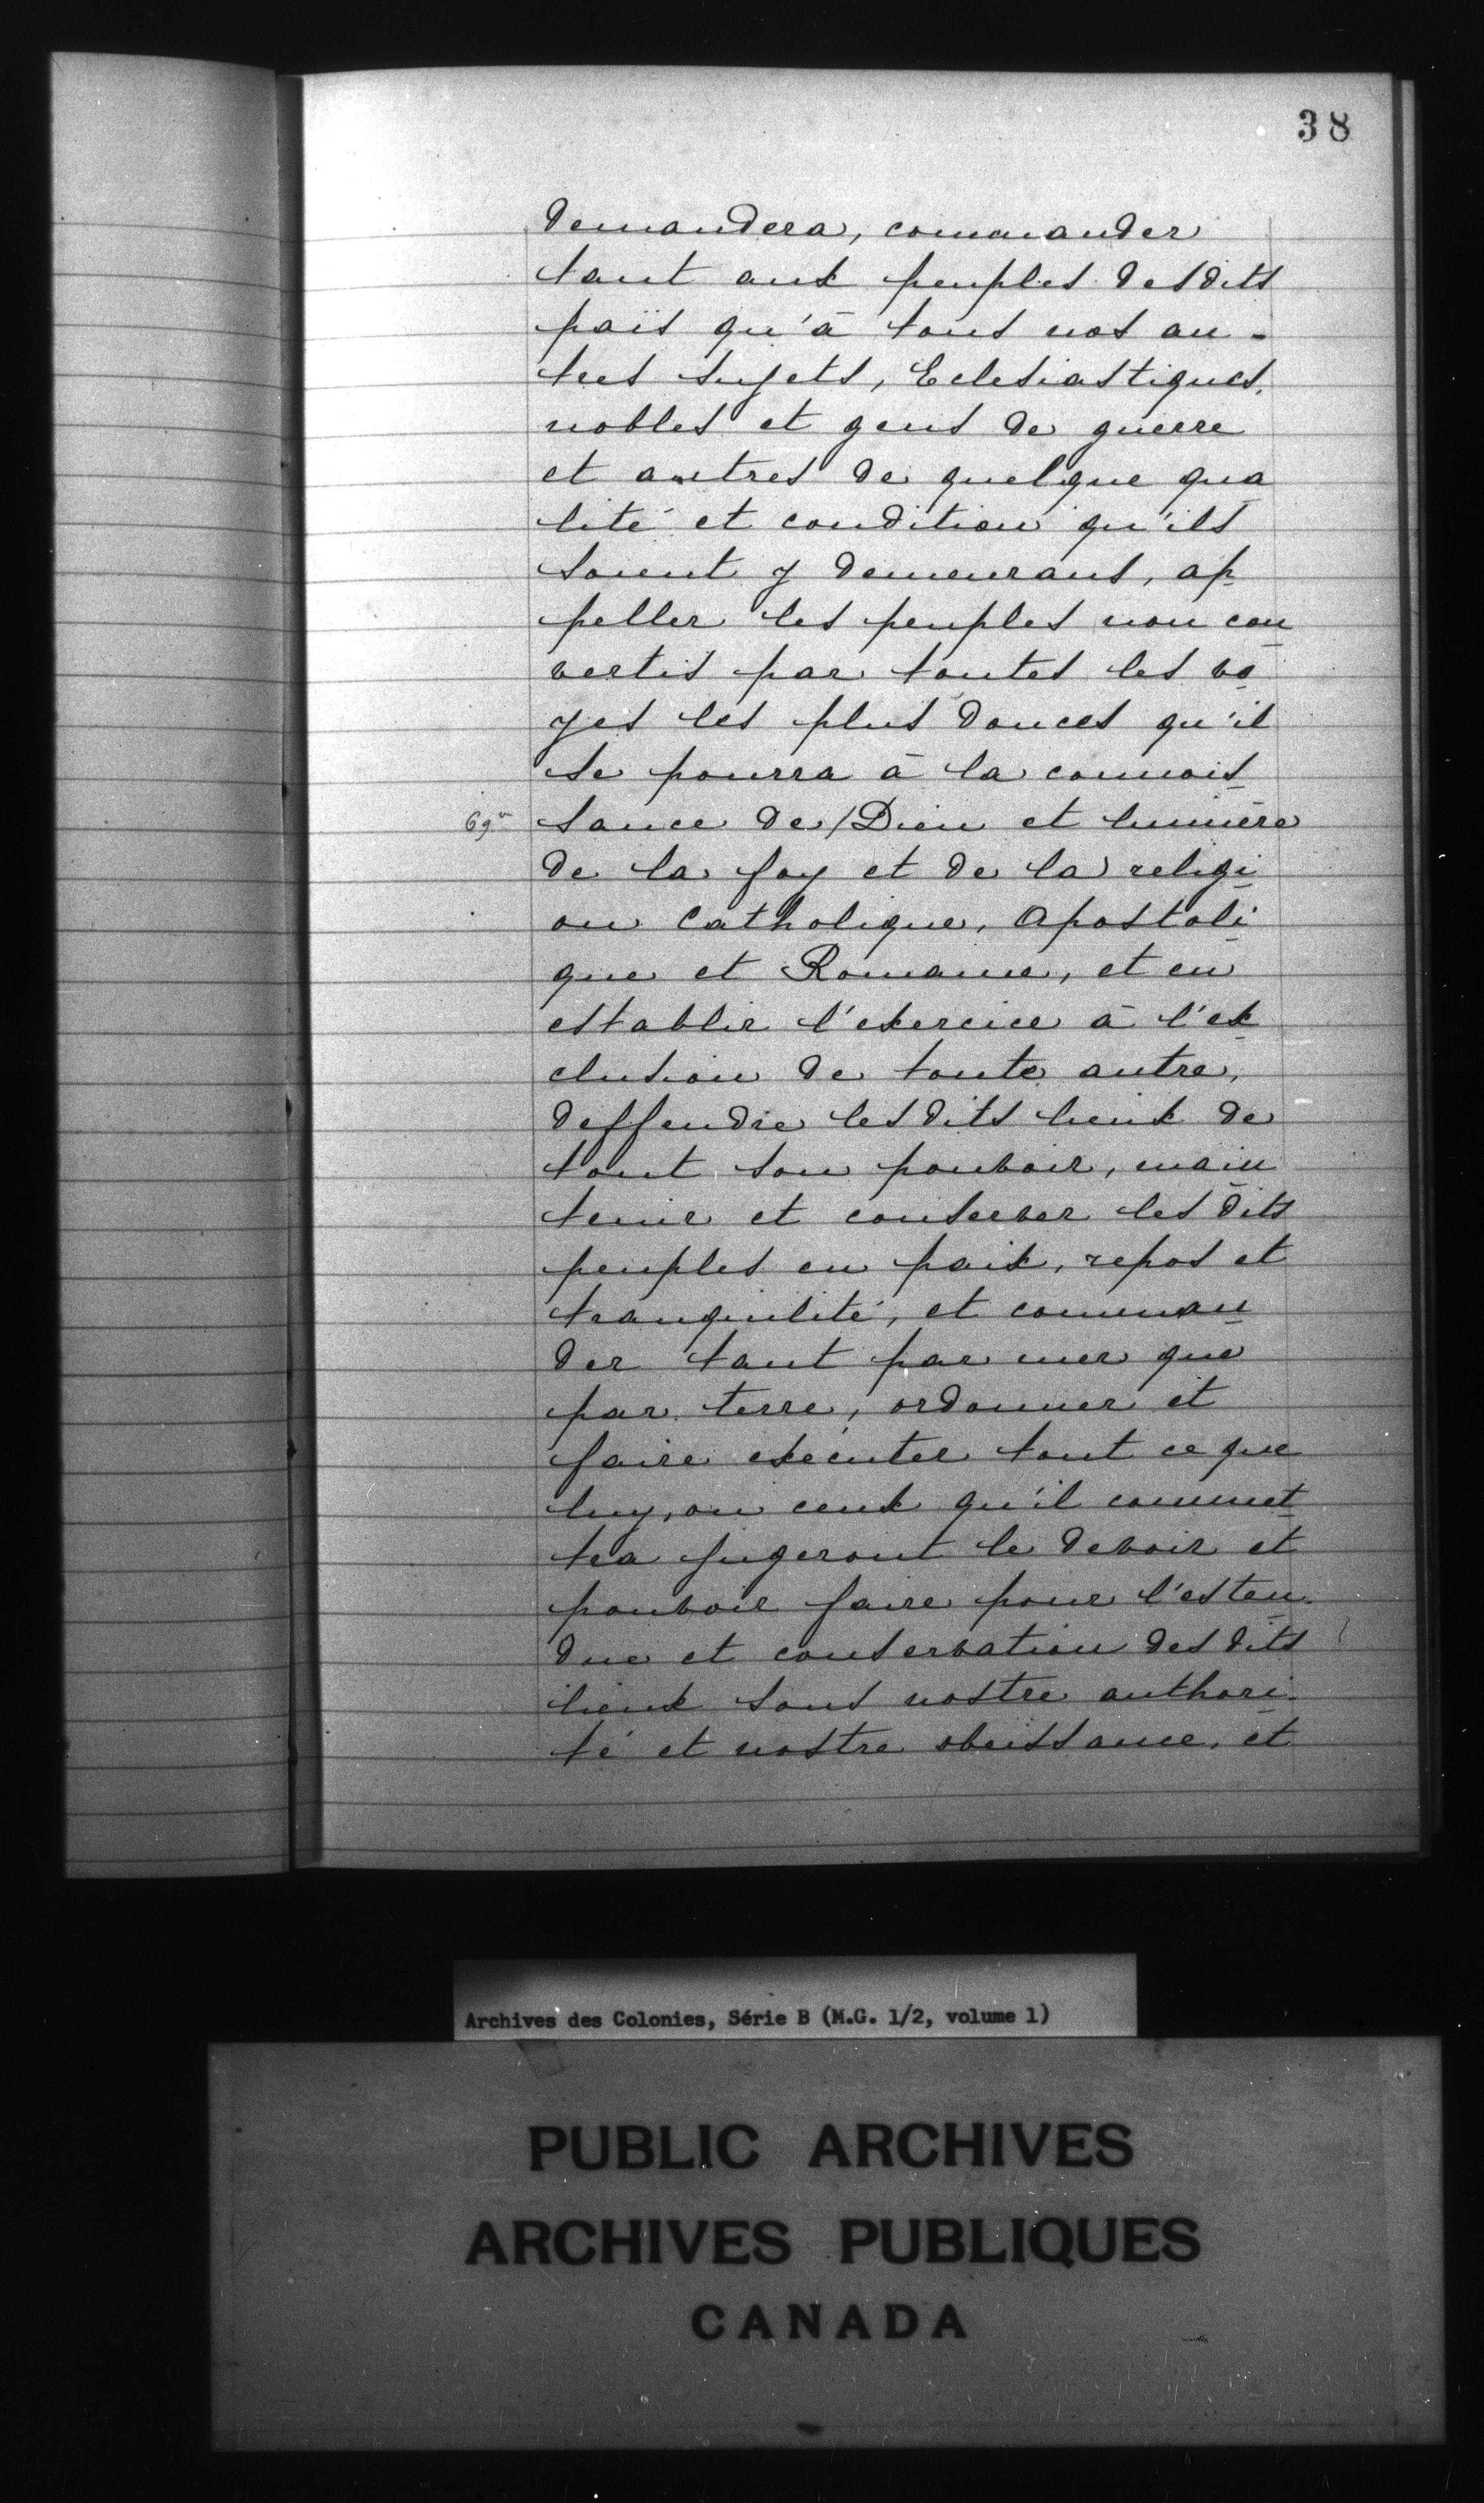 38
demandera, commander
tant aux peuples desdits
païs qu'à tous nos au-
tres sujets, Eclesiastiques,
nobles et gens de guerre
et autres de quelque qua
lité et condition qu'ils
soient y demeurans, ap-
peller les peuples non con
vertis par toutes les vo
yes les plus douces qu'il
se pourra à la connois
sance de/Dieu et lumière
de la foy et de la religi
on Catholique, Apostoli
que et Romaine, et en
establir l'exercice à l'ex
clusion de toute autre,
deffendre lesdits lieux de
tout son pouvoir, main
tenir et conserver lesdits
peuples en paix, repos et
tranquilité, et comman
der tant par mer que
par terre, ordonner et
faire exécuter tout ce que
luy, ou ceux qu'il commet
tra jugeront le devoir et
pouvoir faire pour l'esten-
due et conservation desdits
lieux sous nostre authori-
té et nostre obeissance, et
Archives des Colonies, Série B (M.G. 1/2, volume 1)
PUBLIC ARCHIVES
ARCHIVES PUBLIQUES
CANADA